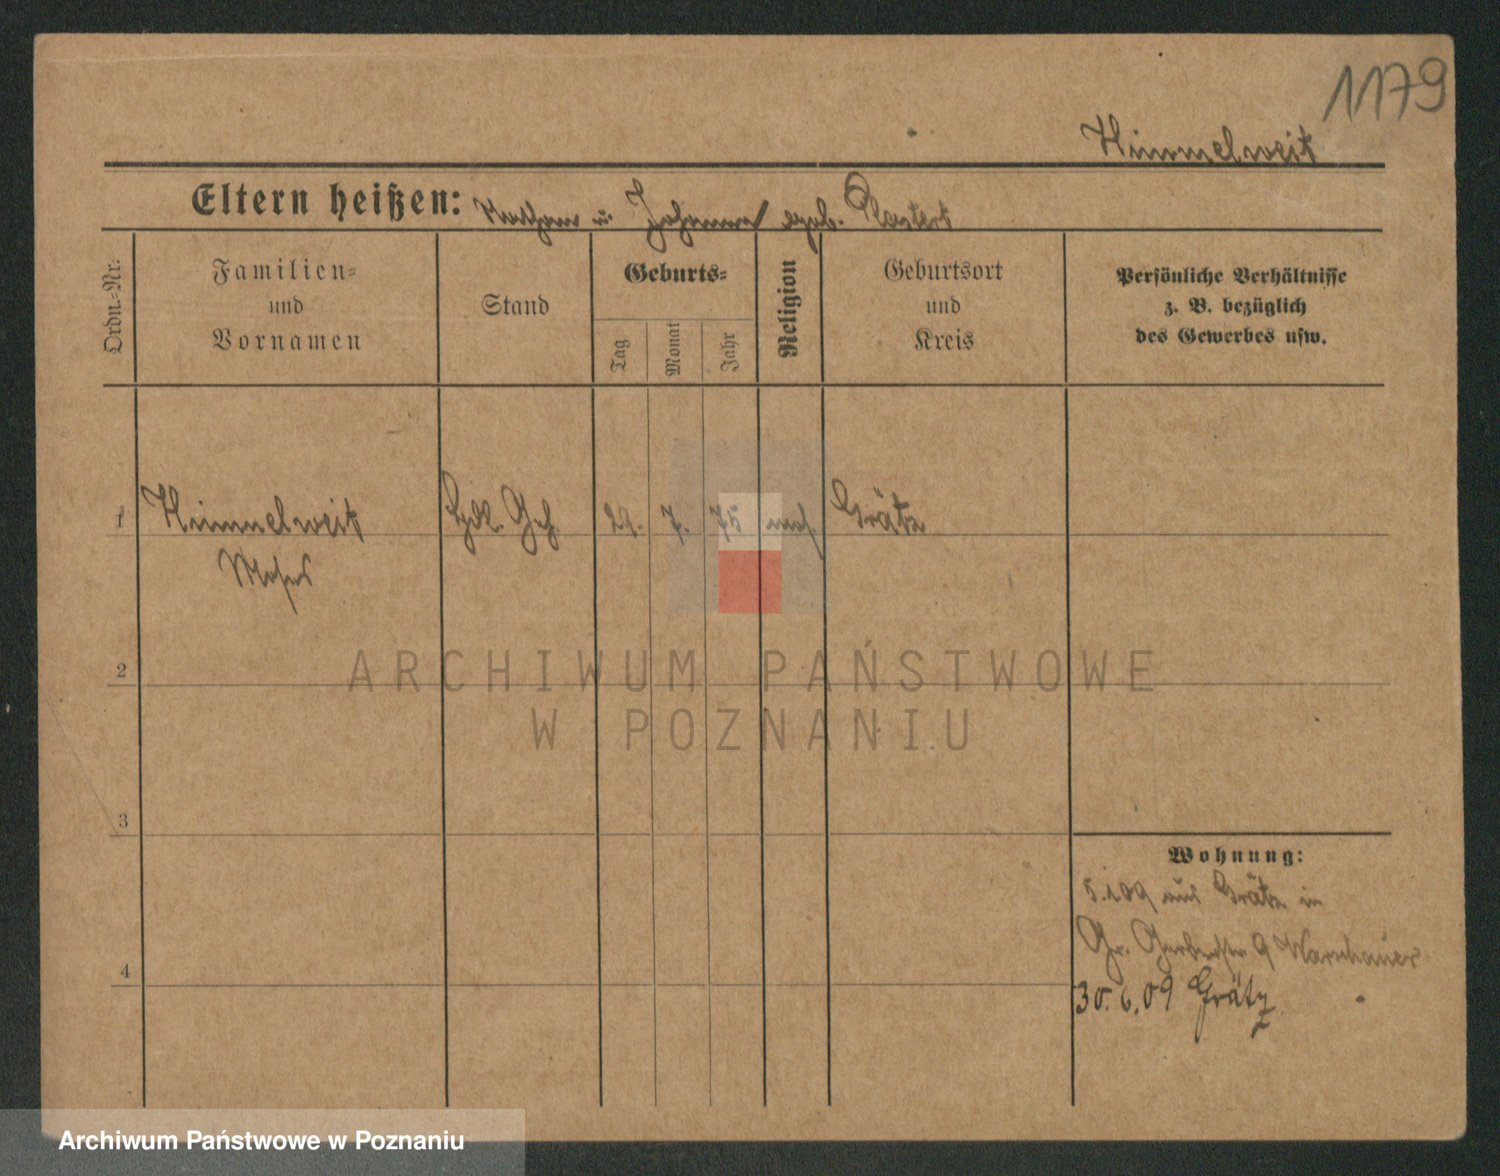 1179
Himmelweit
Eltern heißen: Nathan u. Johanna geb.
Ordn.-Nr.
Familien-
und
Vornamen
Stand
Geburts-
Tag
Monat
Jahr
Religion
Geburtsort
und
Kreis
Persönliche Verhältnisse
z. B. bezüglich
des Gewerbes usw.
1 Himmelweit Hdl. Geh. 29. 7. 75 mos. Grätz
Moses
2
3
4
Wohnung:
5.1 09 aus Grätz in
Gr. Gerberstr 9
30. 6. 09 Grätz
ARCHIWUM PAŃSTWOWE
W POZNANIU
Archiwum Państwowe w Poznaniu